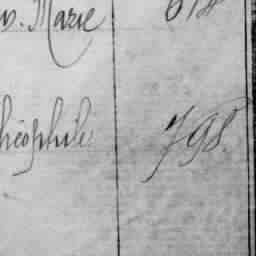 v. Marie 618
héophile 798.